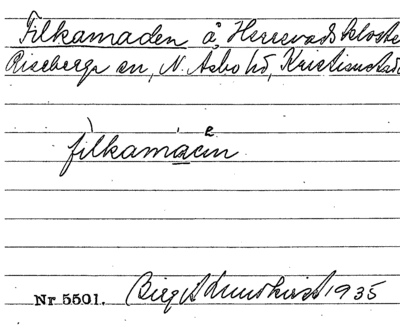 Filkamaden å, Herrevads kloste
Riseberga sn, N. Åsbo hd, Kristianstads
fìlkamáen
Nr 5501. Birgit Lundkvist 1935